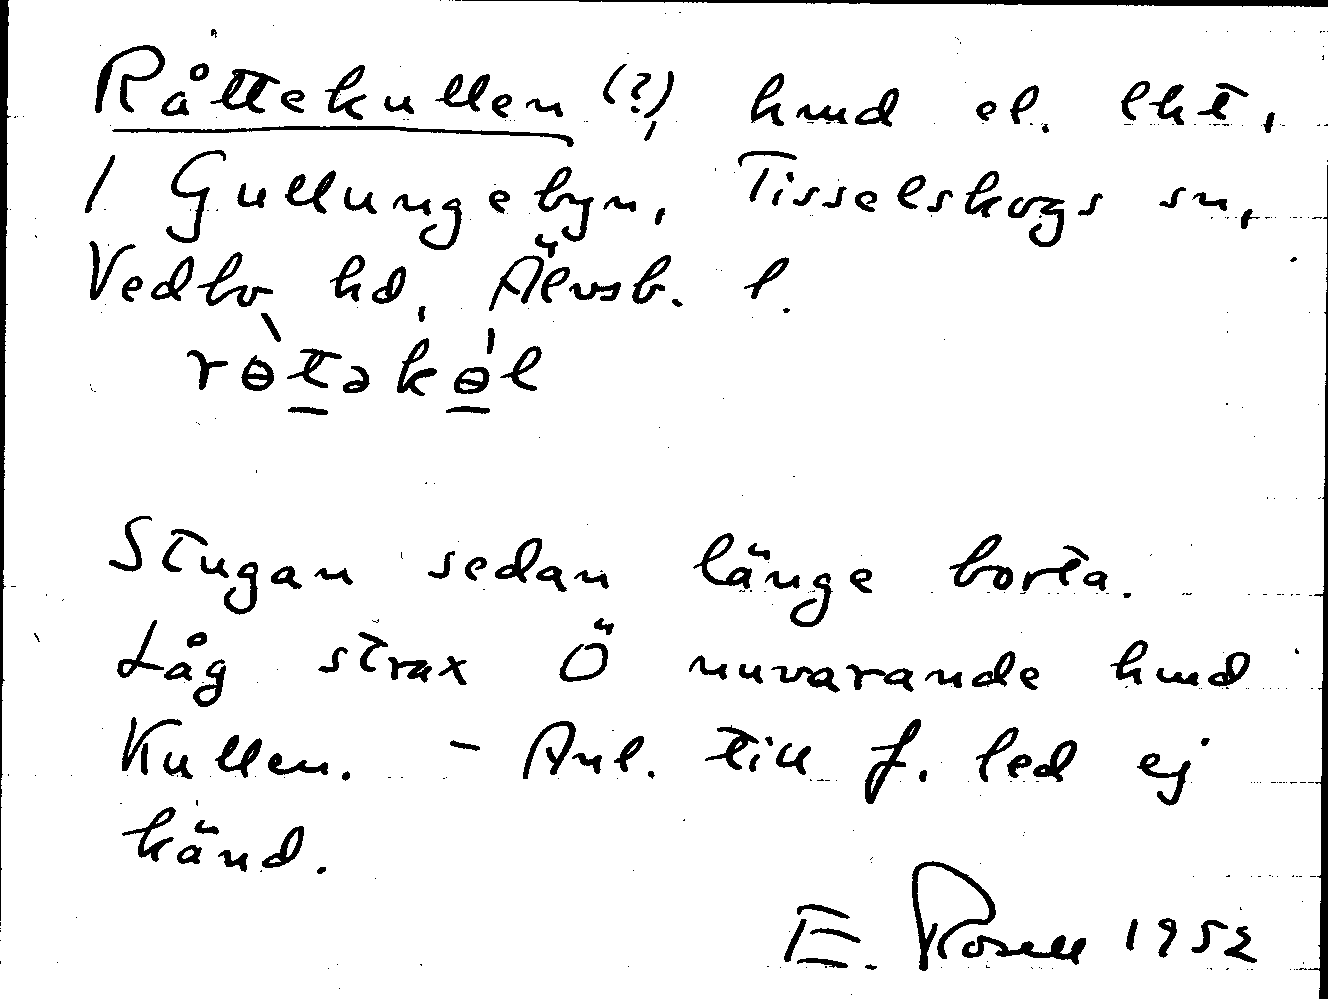 Råttekullen (?), hmd el. lht,
1 Gullungebyn, Tisselskogs sn,
Vedbo hd, Älvsb. l.
rɵ̀təkɵ́l
Stugan sedan länge borta.
Låg strax Ö nuvarande hmd
Kullen. - Anl. till f. led ej
känd.
E. Rosell 1952